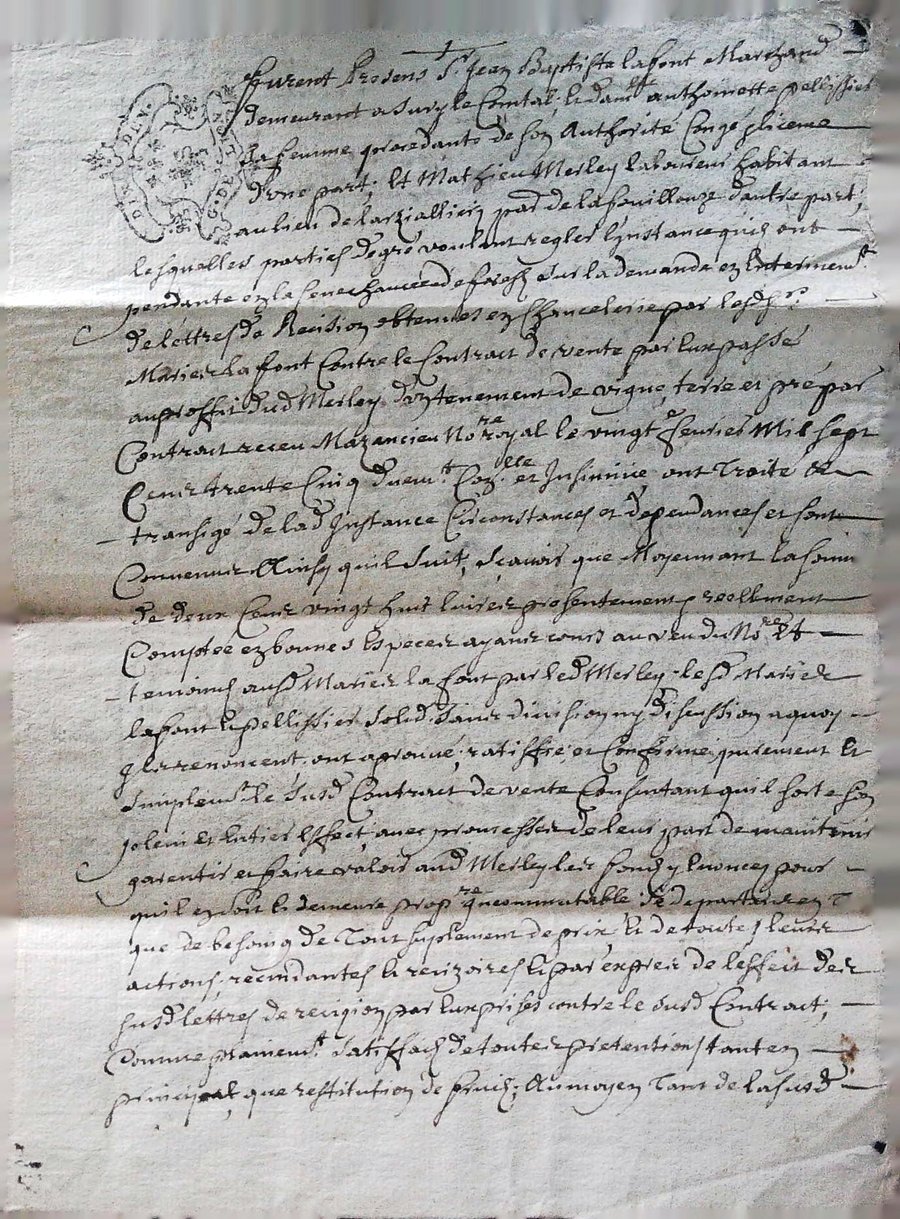 furent Presens Sr. Jean Baptiste lafont Marchand
demeurant a Sury le Comtal, & dam.lle anthoinette pellissier
sa femme procedante de son Authorité Congé
d'une part; Et Mathieu Merley laboureur habitant
au lieu de par.se de la fouillouze d'autre part;
lesquelles parties de gré voulant regler l'instance quils ont
pendante en la senechaucée de forest sur la demande en Interinem.t
de lettres de Recision obtenues en Chancelerie par lesd.
Mariez Lafont Contre le Contract de vente par eux passé
au proffit dud Merley d'un tenement de vigne, terre et pré par
Contract receu Mazancieu No.re royal le vingt fevrier Mil Sept
Cent trente Cinq duem.t Con.llé et Insinué, ont Traité &
transigé de lad Instance Circonstances et dependances et sont
Convenus Ainsy quil suit, Scavoir que Moyennant la somme
de deux Cent vingt huit livres presentement reellement
Comptée en bonnes Especes ayant cours au veu du No.re Et
temoins ausd Mariez lafont par led Merley lesd Mariez
lafont & pellissier solid. sans division ny discussion a quoy
ils renoncent, ont aprouvé, ratiffié, et Confirmé, purement &
simplem.t le susd Contract de vente Consentant quil sorte son
plein et entier Effect, avec promesses de leur part de maintenir
garentir et faire valoir aud Merley les fonds y enoncez pour
quil en soit & demeure prop.re incommutable se departants en T
que de besoing de Tout suplement de prix & de toutes leurs
actions, recindantes & recizoires & par exprez de l'effeit des
susd lettres de recizion par eux prises contre le susd Contract;
Comme plainem.t satisfaits de toutes pretentions tant en
principal, que restitution de fruits; Au moyen Tant de la susd